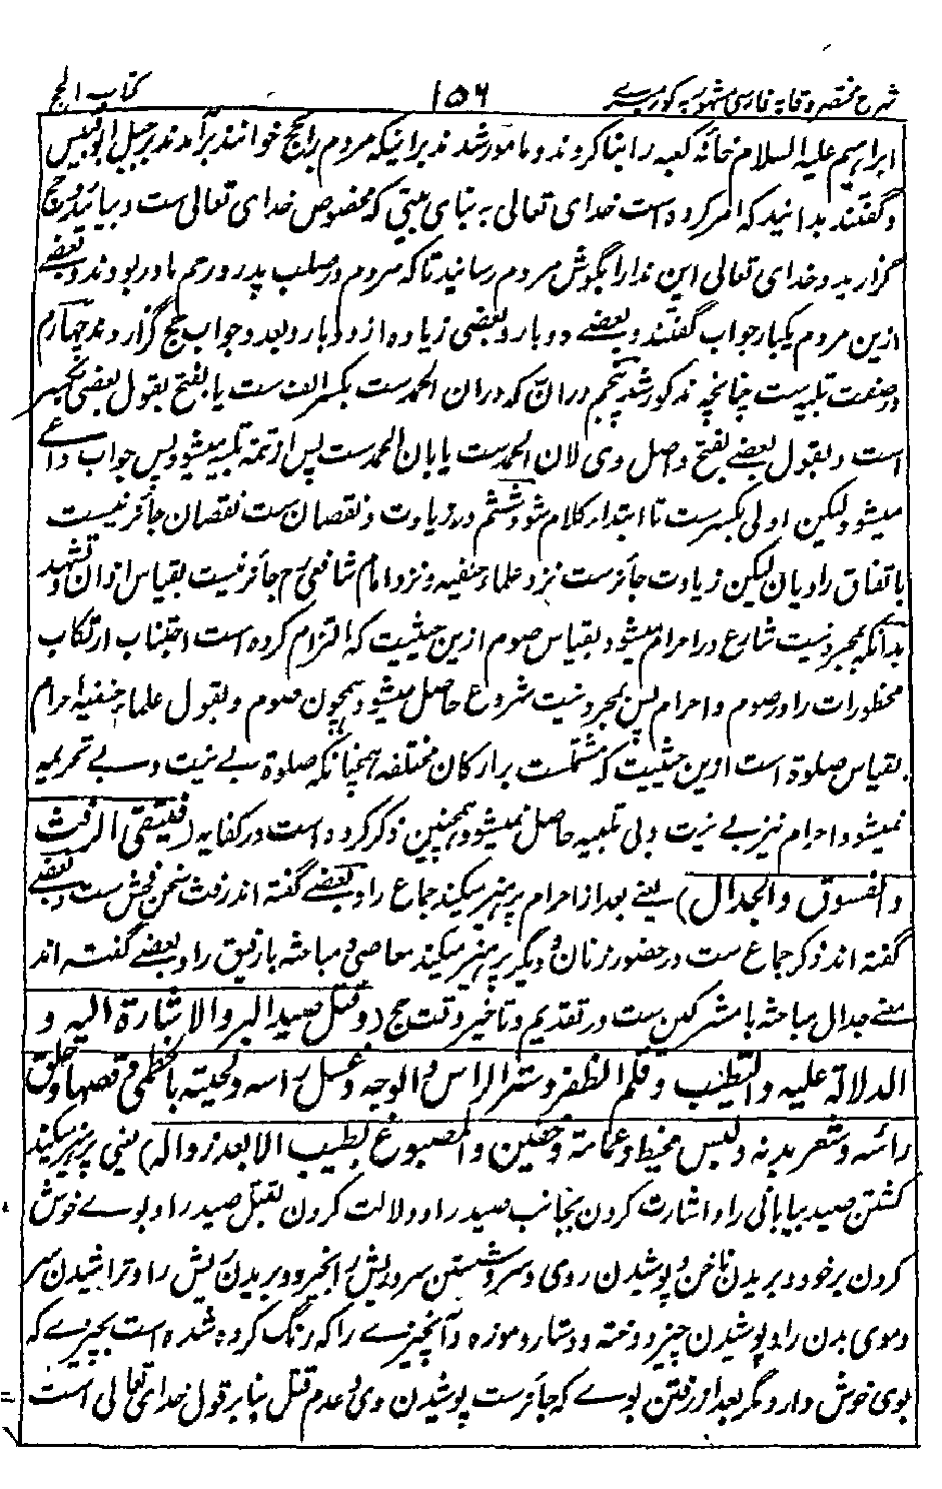 شرح مختصر وقایه فارسی مشهور به کور میرے ۱۵۶ کتاب الحج
ابراہیم علیه السلام خانه کعبه را بنا کردند و مامور شدند برانیکه مردم را بحج خوانند برآمدند بر جبل ابوقبیس
و گفتند بدانید که امر کرده است خدای تعالی به بنای بیتی که مخصوص خدای تعالی ست و بیائید و حج
گزارید و خدای تعالی این ندا را بگوش مردم رسانید تا که مردم در صلب پدر و رحم مادر بودند و بعضے
ازین مردم یکبار جواب گفتند و بعضے دو بار و بعضی زیاده از دو بار و بعدد جواب حج گزاردند چهارم
در صفت تلبیه ست چنانچه مذکور شد پنجم در ان که دران الحمد ست بکسر الف ست یا بفتح بقول بعضی بکسر
است و بقول بعضے بفتح و اصل وی لان الحمد ست یا بان الحمد ست پس از تتمه تلبیه میشود پس جواب داعے
میشود لیکن اولی بکسر ست تا ابتداء کلام شود ششم در زیادت و نقصان ست نقصان جائز نیست
باتفاق راویان لیکن زیادت جائز ست نزد علماء حنفیه و نزد امام شافعی رح جائز نیست بقیاس اذان و تشهد
بدانکه بمجرد نیت شارع در احرام میشود بقیاس صوم ازین حیثیت که التزام کرده است اجتناب ارتکاب
محظورات را در صوم و احرام پس بمجرد نیت شروع حاصل میشود همچون صوم و بقول علماء حنفیه احرام
بقیاس صلوة است ازین حیثیت که مشتملست بر ارکان مختلفه همچنانکه صلوة بے نیت و بے تحریمه
نمیشود احرام نیز بے نیت و بی تلبیه حاصل نمیشود همچنین ذکر کرده است در کفایه (فیتقی الرفث
والفسوق والجدال) یعنے بعد از احرام پرہیز میکند جماع را و بعضے گفته اند رفث سخن فحش ست و بعضے
گفته اند ذکر جماع ست در حضور زنان و دیگر پرہیز میکند معاصی و مباحثه با رفیق را و بعضے گفته اند
معنے جدال مباحثه با مشرکین ست در تقدیم و تاخیر وقت حج (وقتل صید البر والاشارة الیه و
الدلالة علیه والتطیب وقلم الظفر وستر الراس والوجه وغسل راسه ولحیته بالخطمی وقصها وحلق
راسه وشعر بدنه ولبس مخیط وعمامة وخفین والمصبوغ بطیب الا بعد زواله) یعنی پرہیز میکند
کشتن صید بیابانی را و اشارت کردن بجانب صید را و دلالت کردن بقتل صید را و بوے خوش
کردن بر خود و بریدن ناخن و پوشیدن روی و سر و شستن سر و ریش را بخیرو و بریدن ریش را و تراشیدن سر
و موی بدن را و پوشیدن چیز دوخته و دستار و موزه و آنچیزے را که رنگ کرده شده است بچیزے که
بوی خوش دارد مگر بعد از رفتن بوے که جائز ست پوشیدن وی و عدم قتل بنا بر قول خدای تعالی است